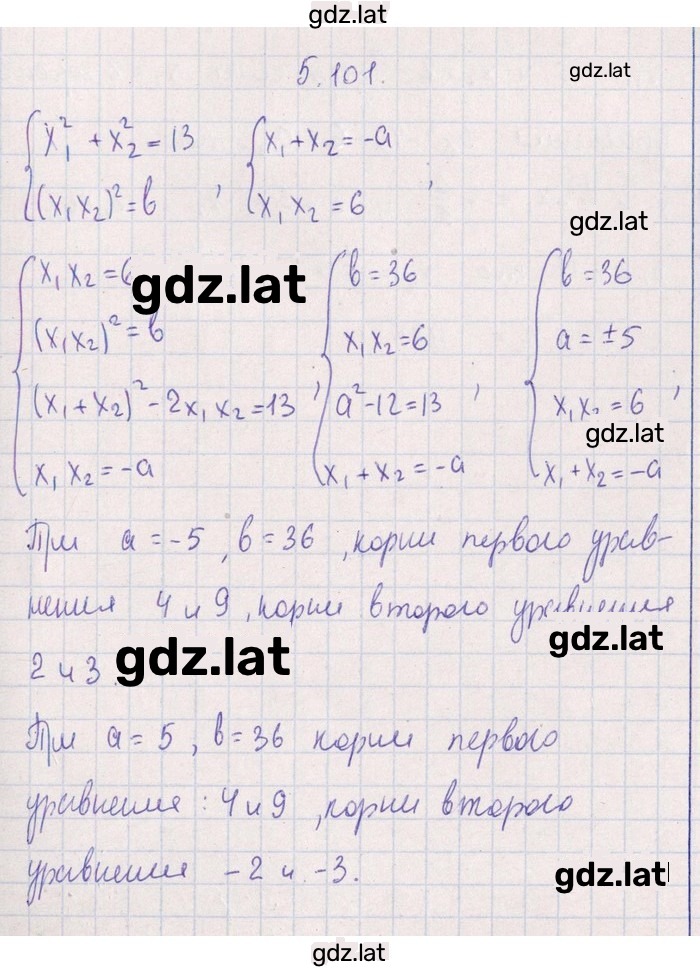 gdz.lat
5.101.
gdz.lat
x₁² + x₂² = 13
(x₁x₂)² = b ,
x₁ + x₂ = -a
x₁x₂ = 6 ,
gdz.lat
x₁x₂ = 6
(x₁x₂)² = b
(x₁ + x₂)² - 2x₁x₂ = 13 ,
x₁x₂ = -a
gdz.lat
b = 36
x₁x₂ = 6
a² - 12 = 13 ,
x₁ + x₂ = -a
b = 36
a = ±5
x₁x₂ = 6 ,
x₁ + x₂ = -a
gdz.lat
При a = -5, b = 36, корни первого урав-
нения 4 и 9, корни второго уравнения
gdz.lat
2 и 3
gdz.lat
При a = 5, b = 36 корни первого
уравнения: 4 и 9, корни второго
уравнения -2 и -3.
gdz.lat
gdz.lat